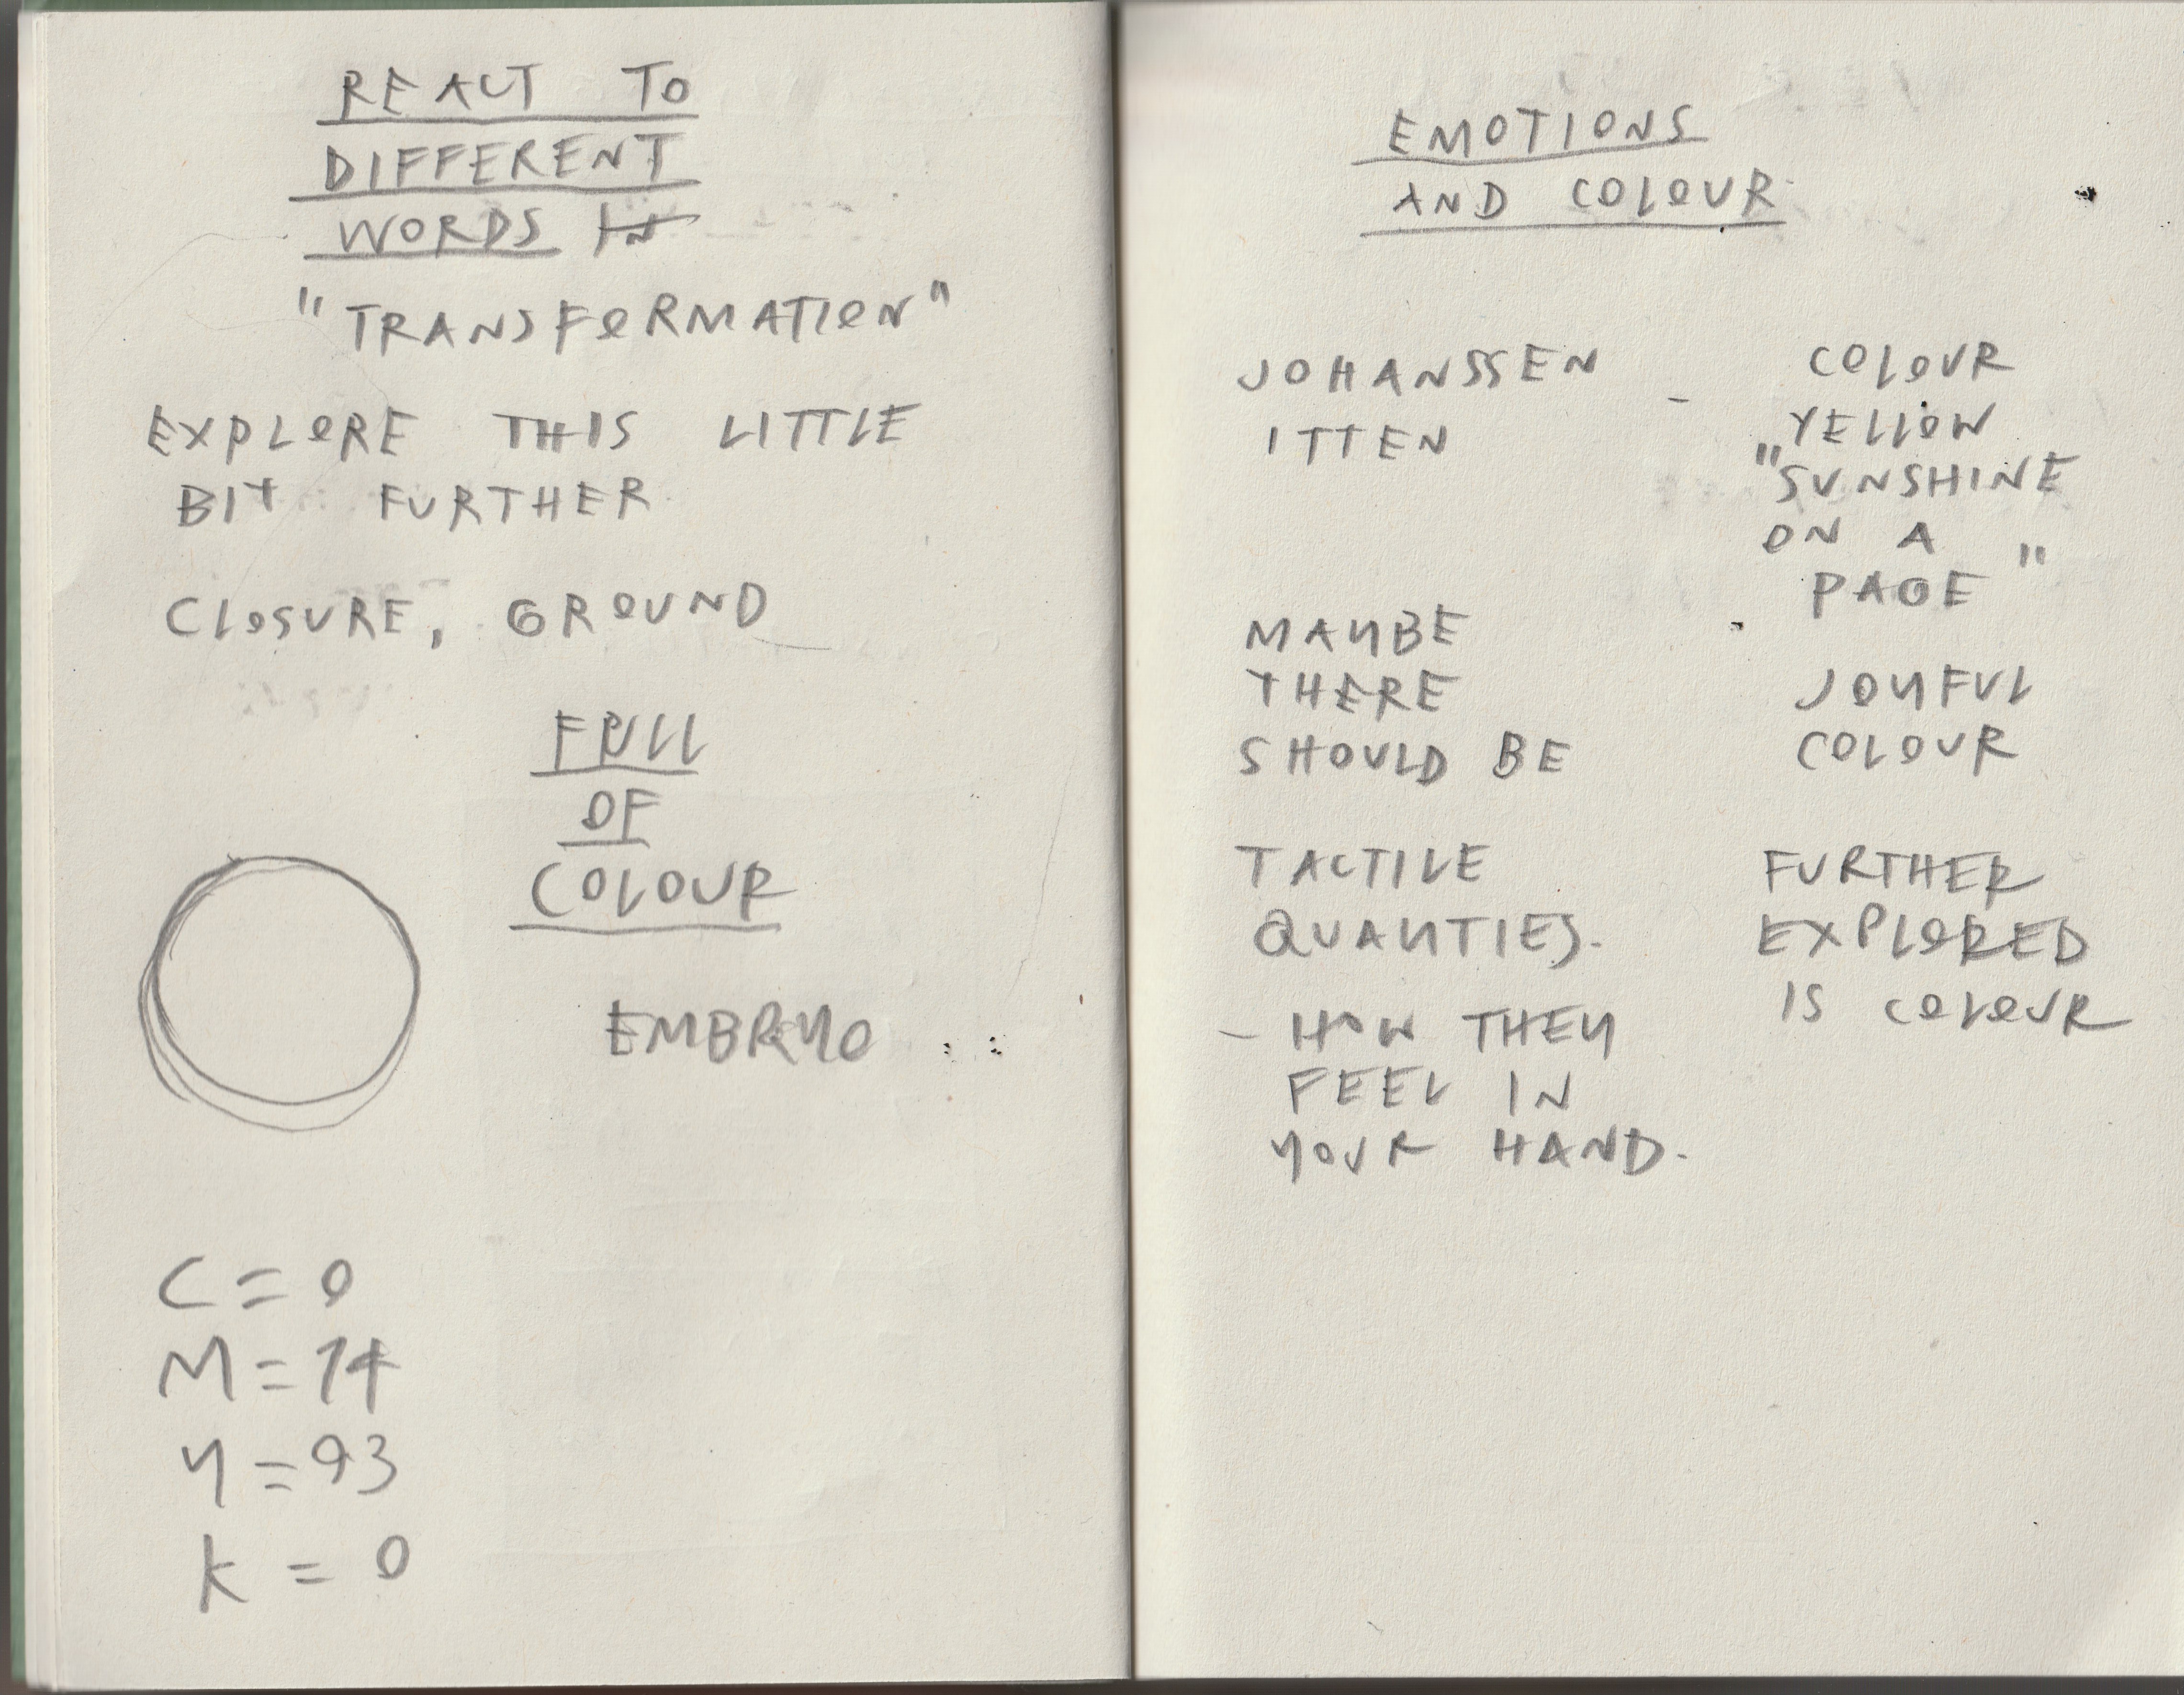 REACT TO
DIFFERENT
WORDS IN
"TRANSFORMATION"
EXPLORE THIS LITTLE
BIT FURTHER
CLOSURE, GROUND
FULL
OF
COLOUR
EMBRYO
C = 0
M = 14
Y = 93
K = 0
EMOTIONS
AND COLOUR
JOHANSSEN -
ITTEN
MAYBE
THERE
SHOULD BE
TACTILE
QUANTIES.
- HOW THEY
FEEL IN
YOUR HAND.
COLOUR
YELLOW
"SUNSHINE
ON A
PAGE"
JOYFUL
COLOUR
FURTHER
EXPLORED
IS COLOUR